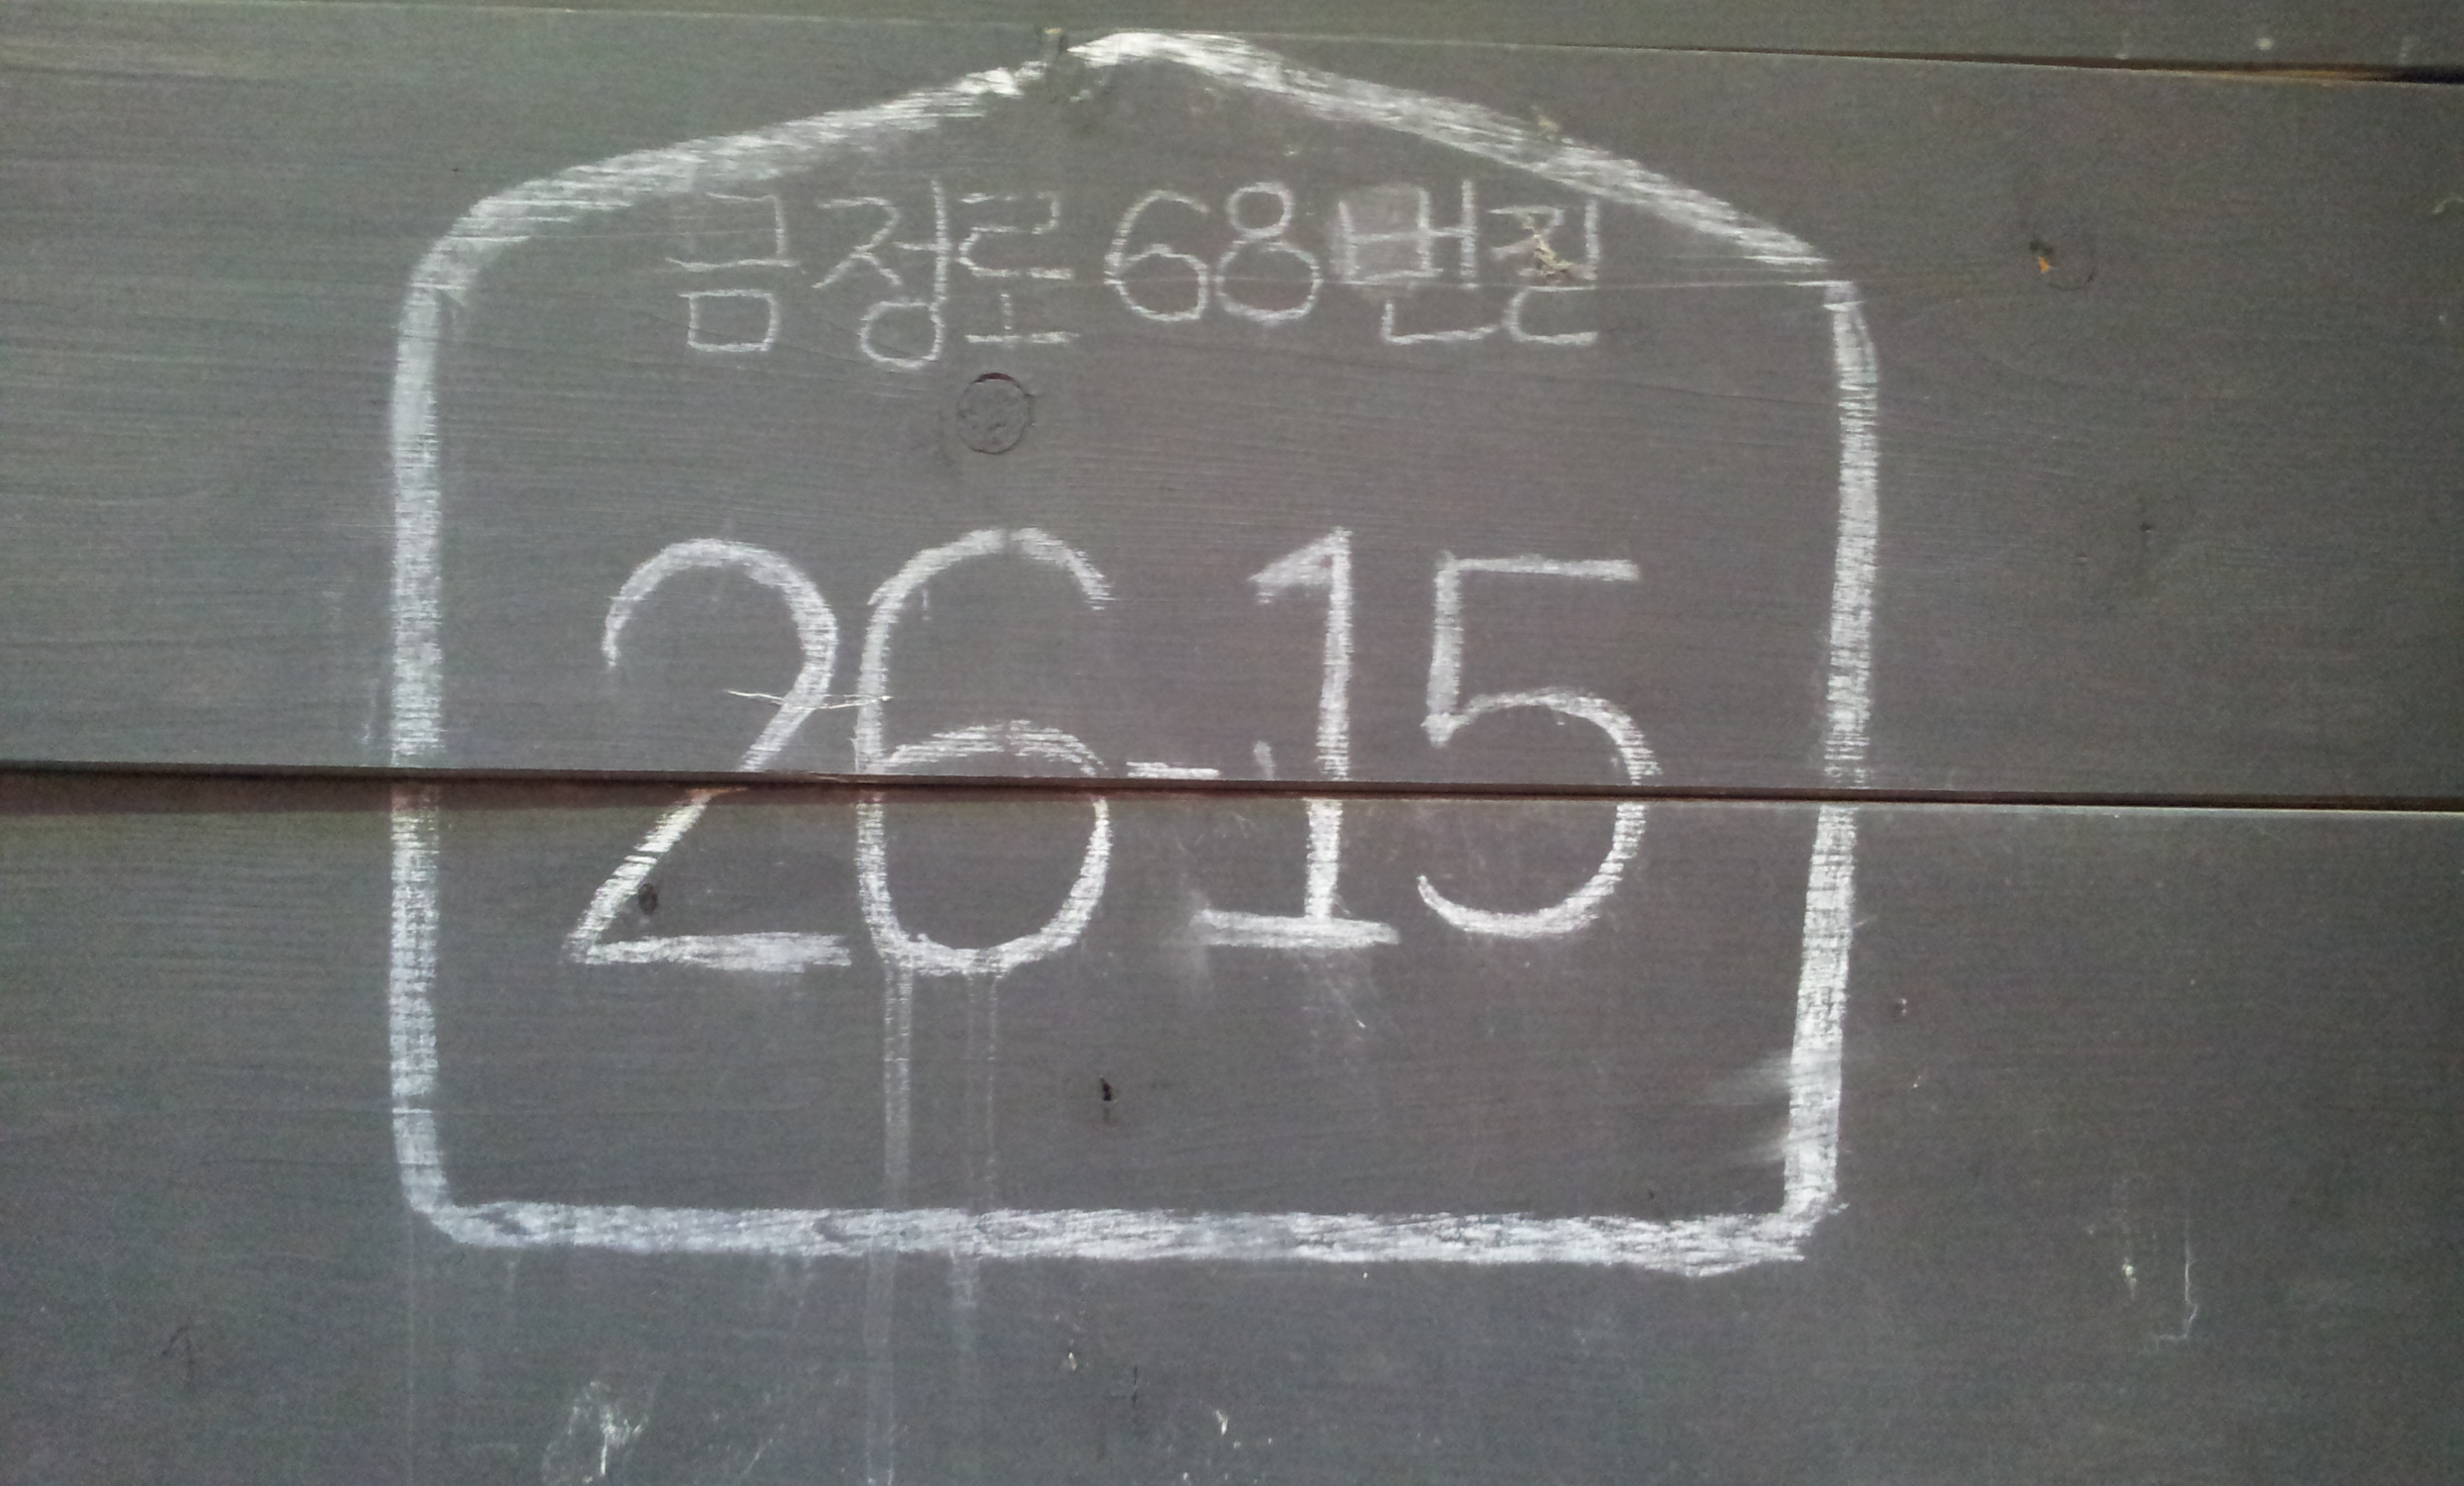 금정로68번길
26-15